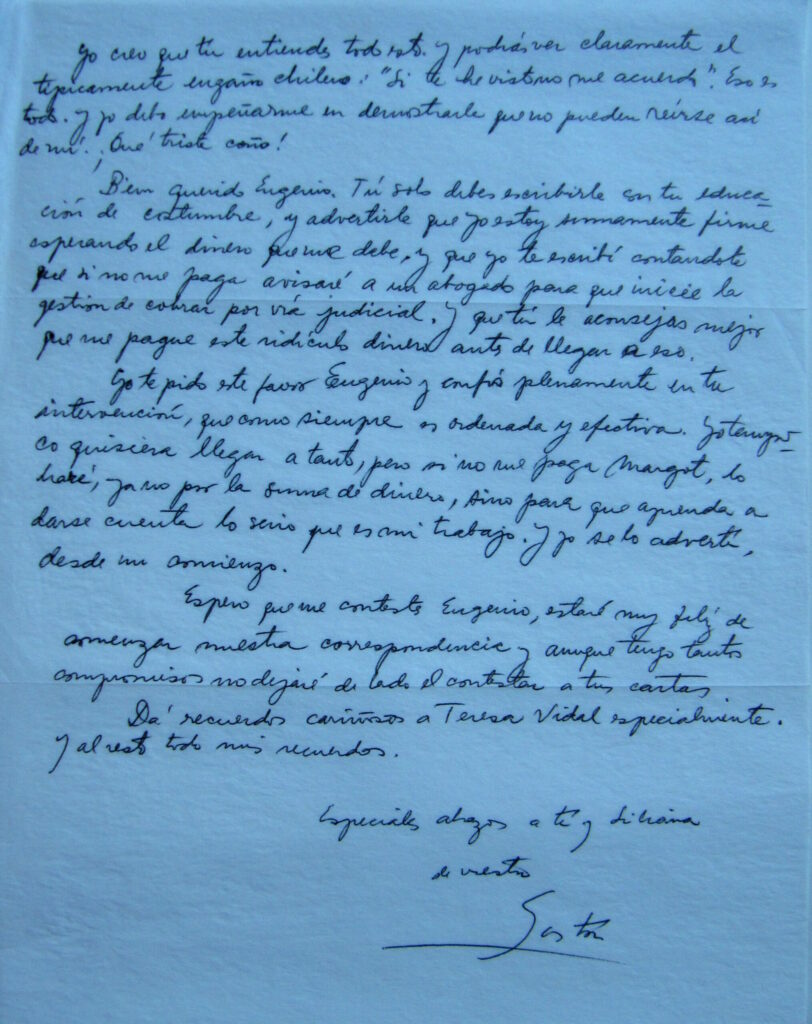 Yo creo que tú entiendes todo esto. y podrás ver claramente el
típicamente engaño chileno: "Si te he visto no me acuerdo". Eso es
todo. y yo debo empeñarme en demostrarle que no pueden reirse así
de mí. ¡Qué triste coño!
Bien querido Eugenio. Tú solo debes escribirle con tu educa-
ción de costumbre, y advertirle que yo estoy sumamente firme
esperando el dinero que me debe, y que yo te escribí contandote
que si no me paga avisaré a un abogado para que inicie la
gestión de cobrar por vía judicial. Y que tú le aconsejas mejor
que me pague este ridiculo dinero antes de llegar a eso.
Yo te pido este favor Eugenio y confío plenamente en tu
intervención, que como siempre es ordenada y efectiva. Yo tampo-
co quisiera llegar a tanto, pero si no me paga Margot, lo
haré, ya no por la suma de dinero, sino para que aprenda a
darse cuenta lo serio que es mi trabajo. Y yo se lo advertí,
desde un comienzo.
Espero que me contestes Eugenio, estaré muy feliz de
comenzar nuestra correspondencia y aunque tengo tantos
compromisos no dejaré de lado el contestar a tus cartas
Dá recuerdos cariñosos a Teresa Vidal especialmente.
Y al resto todo mis recuerdos.
Especiales abrazos a tí y Liliana
de vuestro
Gastón